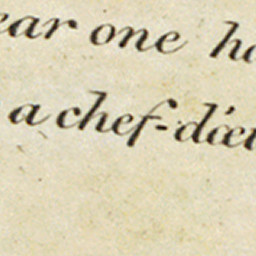 ear one ha
a chef-d'œu